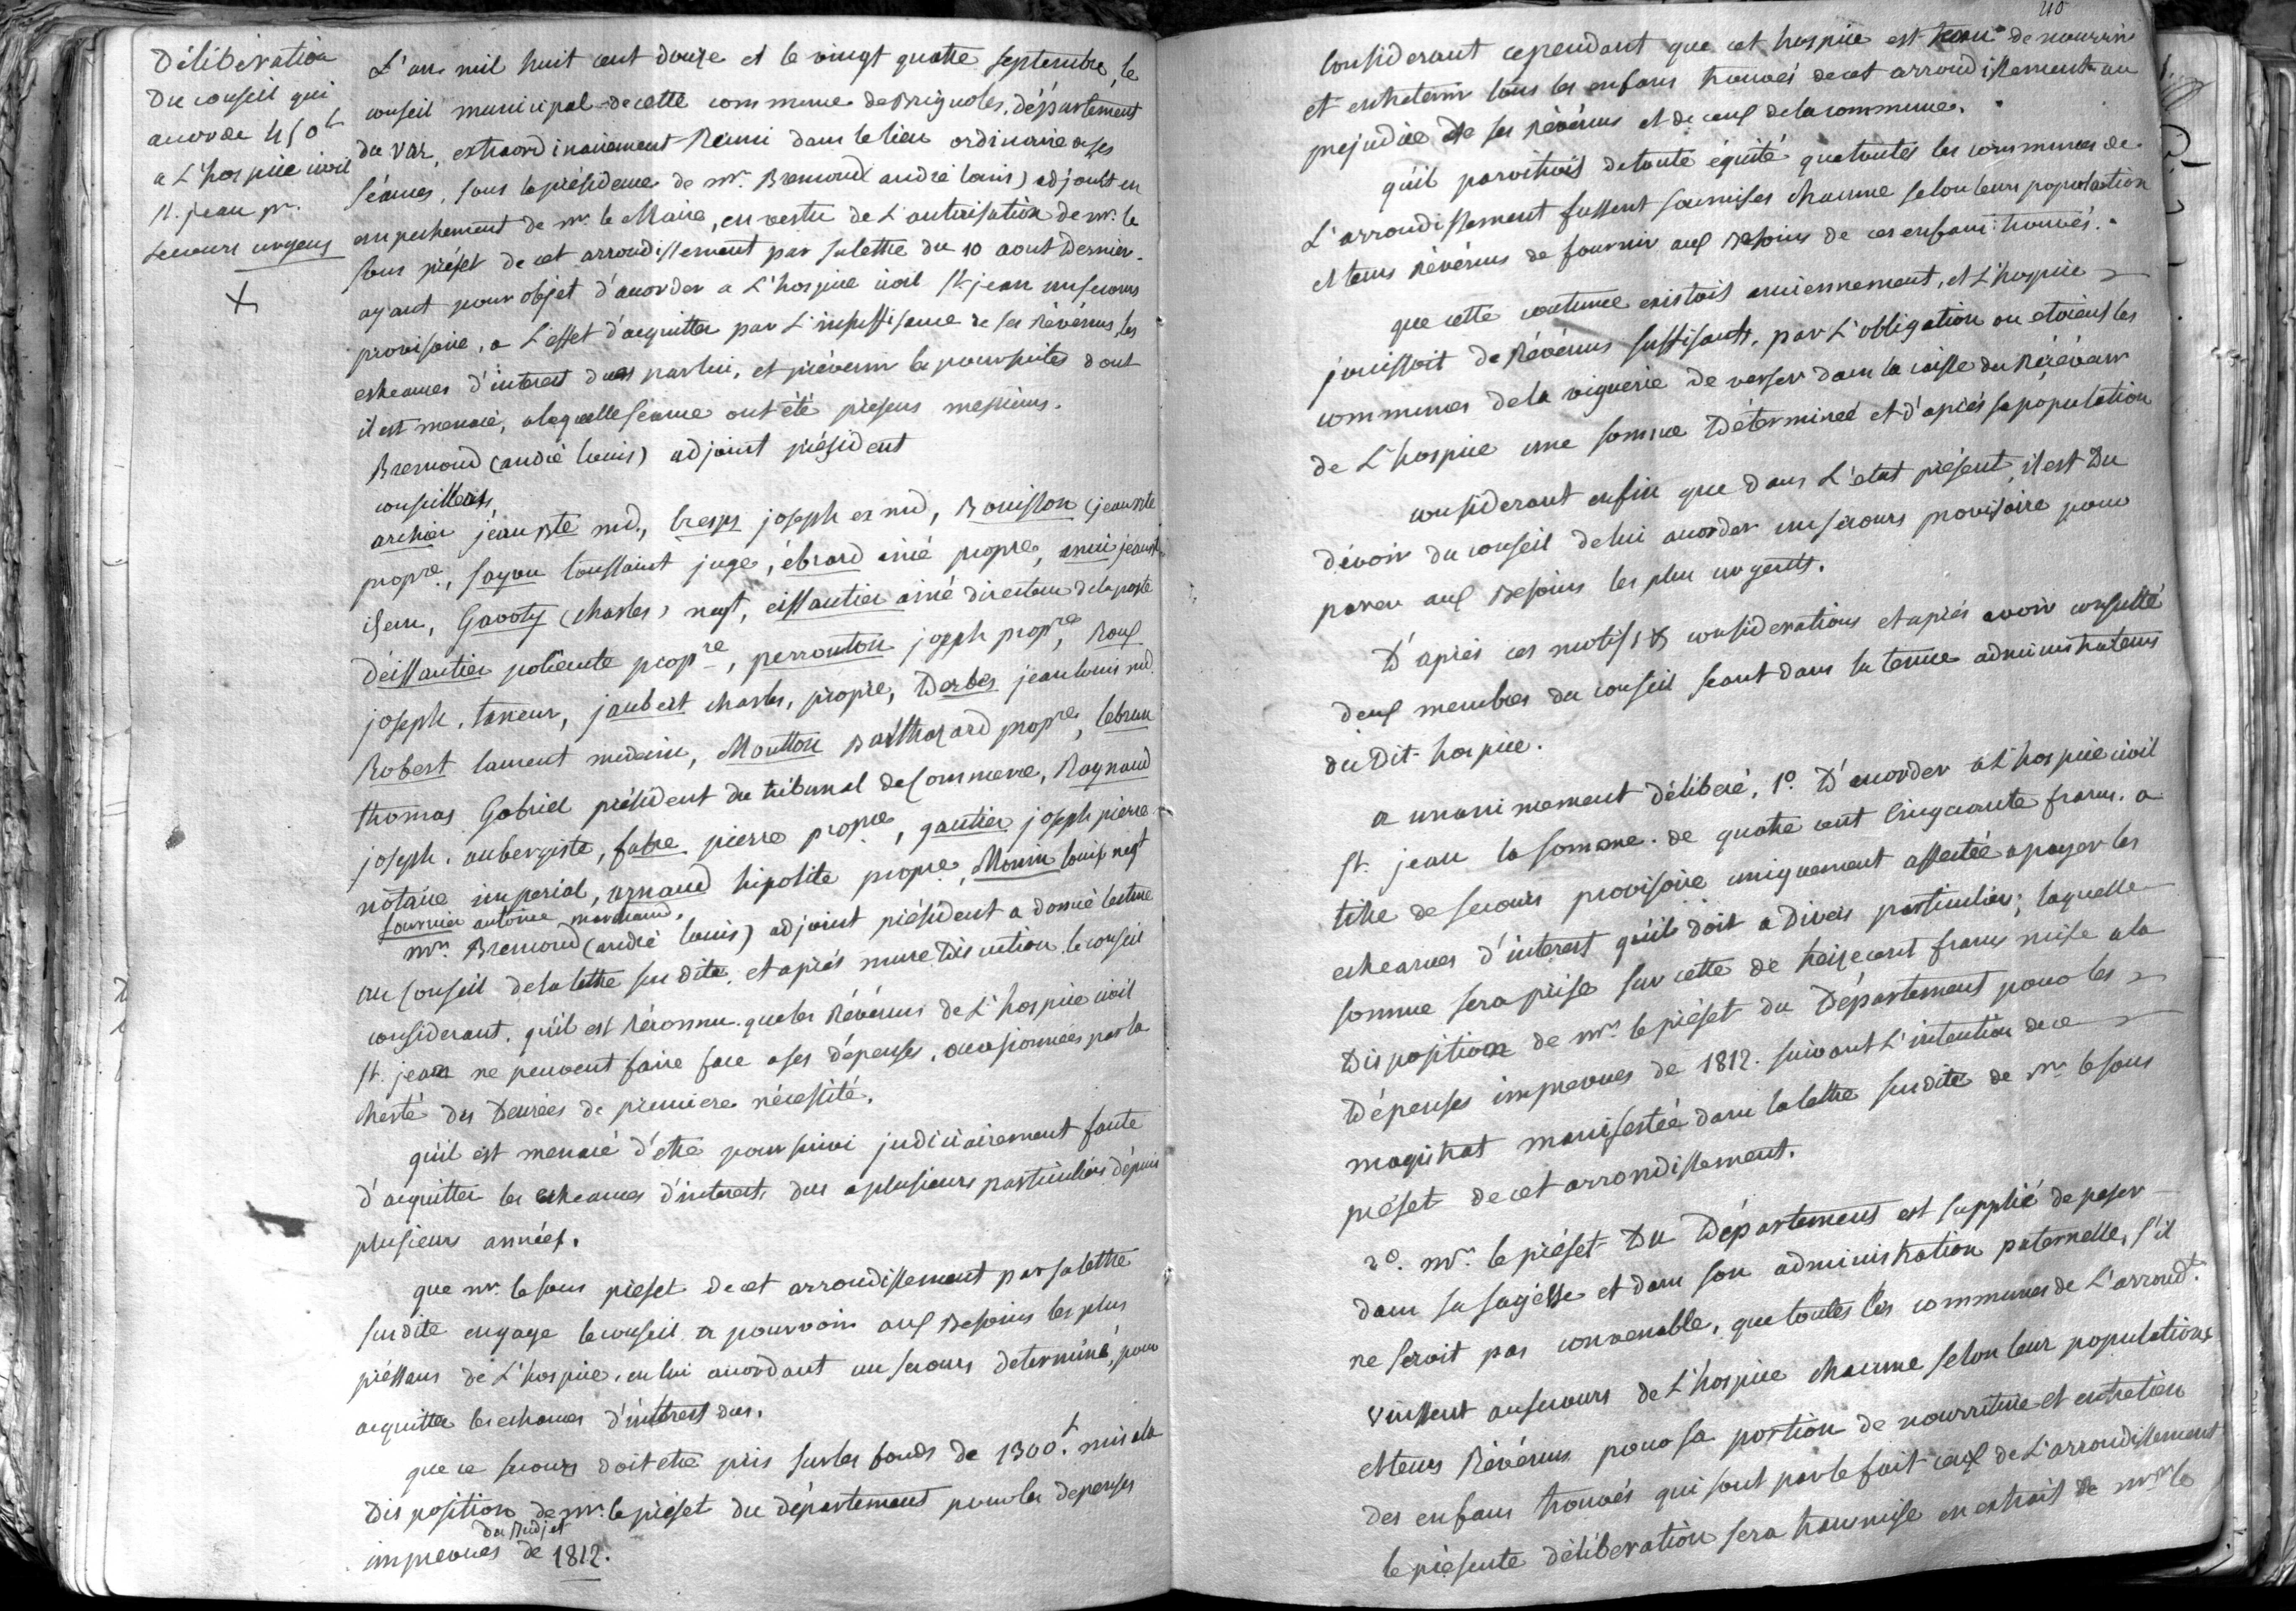 Délibération
Du conseil qui
accorde 450 L
a L'hospice civil
St. jean pr.
secours urgens
L'an mil huit cent douze et le vingt quatre septembre, le
conseil municipal de cette commune de Brignoles, département
du var, extraordinairement Réuni dans le lieu ordinaire de ses
séances, sous la présidence de mr. Bremond andré louis) adjoint en
empechement de mr. le Maire, en vertu de L'autorisation de mr. le
sous préfet de cet arrondissement par sa lettre du 10 aout dernier.
ayant pour objet d'accorder a L'hospice civil St. jean un secours
provisoire, a L'effet d'acquitter par L'insuffisance de ses Révénus, les
echeances d'interest dues par lui, et prévenir les poursuites dont
il est menacé, a laquelle séance ont été présens messieurs.
Bremond (andré louis) adjoint président
conseillers,
archier jean Bte md., Cresps joseph md, Bouisson (jean Bte
propre, fayou toussaint juge, ébrard ainé propre, amic jean
isem, Gavoty (charles) negt, eissautier ainé directeur de la poste
déissautier policarte propre, perrouton joseph propre, Roux
joseph, taneur, jaubert charles, propre, Derbes jean louis md.
Robert laurent medecin, Moutton Balthazard propre, lebrun
thomas Gabriel président du tribunal de Commerce, Raynaud
joseph, aubergiste, fabre pierre propre, gautier joseph pierre
notaire imperial, arnaud hipolite propre, Monin louis negt
fournier antoine marchand,
mr. Bremond (andré louis) adjoint président a donné lecture
au Conseil de la lettre sus dite, et aprés mure Discution le conseil
considerant, qu'il est Réconnu que les Révénus de L'hospice civil
St. jean ne peuvent faire face a ses dépenses, occasionnées par la
cherté des Denrées de premiere nécessité.
qu'il est menacé d'etre poursuivi judiciairement faute
d'acquitter les echeances d'interest dues a plusieurs particuliers dépuis
plusieurs années.
que mr. le sous préfet de cet arrondissement par sa lettre
susdite engage le conseil a pourvoir aux Besoins les plus
préssans de L'hospice, en lui accordant un secours determiné, pour
acquitter les echeances d'interest dues.
que ce secours doit etre pris sur les fonds de 1300 L mis a la
Disposition de mr. le préfet du département pour les depenses
du Budjet
imprevues de 1812.
40
Considerant cependant que cet hospice est tenu de nourrir
et entretenir tous les enfans trouvés de cet arrondissement au
prejudice de ses Révénus et de ceux de la commune.
qu'il paroitroit de toute équité que toutes les communes de
L'arrondissement fussent soumises chacune selon leurs population
et leurs Révénus de fournir aux Besoins de ces enfans trouvés.
que cette coutume existoit anciennement, et L'hospice
jouissoit de Révénus suffisants, par L'obligation ou etoient les
communes de la viguerie de verser dans la caisse du Récéveur
de L'hospice une somme Déterminée et d'aprés sa population
considerant enfin que dans L'état présent, il est Du
dévoir du conseil de lui accorder un secours provisoire pour
parer aux Besoins les plus urgents.
D'aprés ces motifs & considerations et aprés avoir consulté
deux membres du conseil seant dans la tenue administrateurs
du Dit hospice.
a unanimement délibéré, 1º. D'accorder a L'hospice civil
St. jean la somme de quatre cent Cinquante francs. a
titre de secours provisoire uniquement affectée a payer les
echeances d'interest qu'il doit a Divers particuliers; laquelle
somme sera prise sur cette de treize cent francs mise a la
Disposition de mr. le préfet du Département pour les
Dépenses imprevues de 1812. suivant L'intention de ce
magistrat manifestée dans la lettre susdite de mr. le sous
préfet de cet arrondissement.
2º. mr. le préfet Du Département est supplié de peser
dans sa sagésse et dans son administration paternelle, s'il
ne seroit pas convenable, que toutes les communes de L'arrondt.
vinssent au secours de L'hospice chacune selon leur populations
et leurs Révénus pour sa portion de nourriture et entretien
des enfans trouvés qui sont par le fait ceux de L'arrondissement
le présente délibération sera transmise en extrait de mr. le